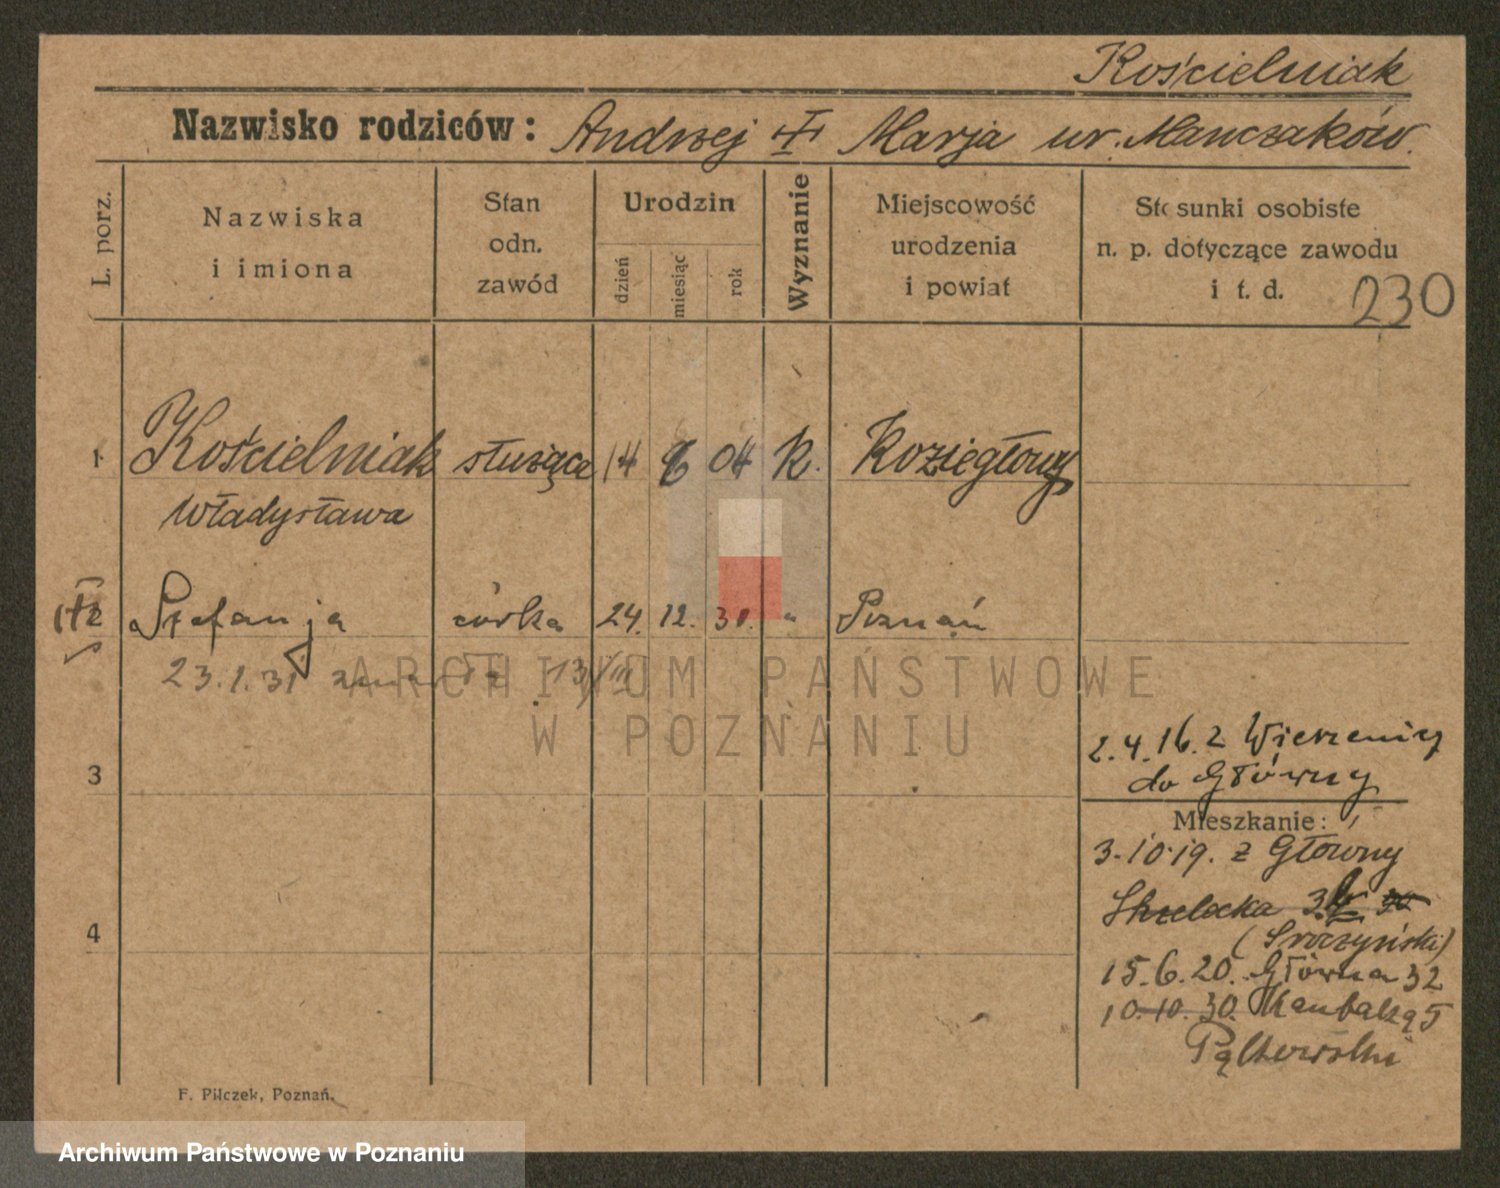 Kościelniak
Nazwisko rodziców: Andrzej i Marja ur. Mańczaków.
L. porz.
Nazwiska
i imiona
Stan
odn.
zawód
Urodzin
dzień
miesiąc
rok
Wyznanie
Miejscowość
urodzenia
i powiat
Stosunki osobiste
n. p. dotyczące zawodu
i t. d.
230
1 Kościelniak służąca 14 6 04 k. Koziegłowy
Władysława
2 Stefanja córka 24. 12. 30. " Poznań
23.1.31 13/III
ARCHIWUM PAŃSTWOWE
W POZNANIU
2.4.16. z Wierzenicy
do Główny
3
Mieszkanie:
3.10.19. z Główny
4
15.6.20. Główna 32
10.10.30. 5
F. Pilczek, Poznań.
Archiwum Państwowe w Poznaniu